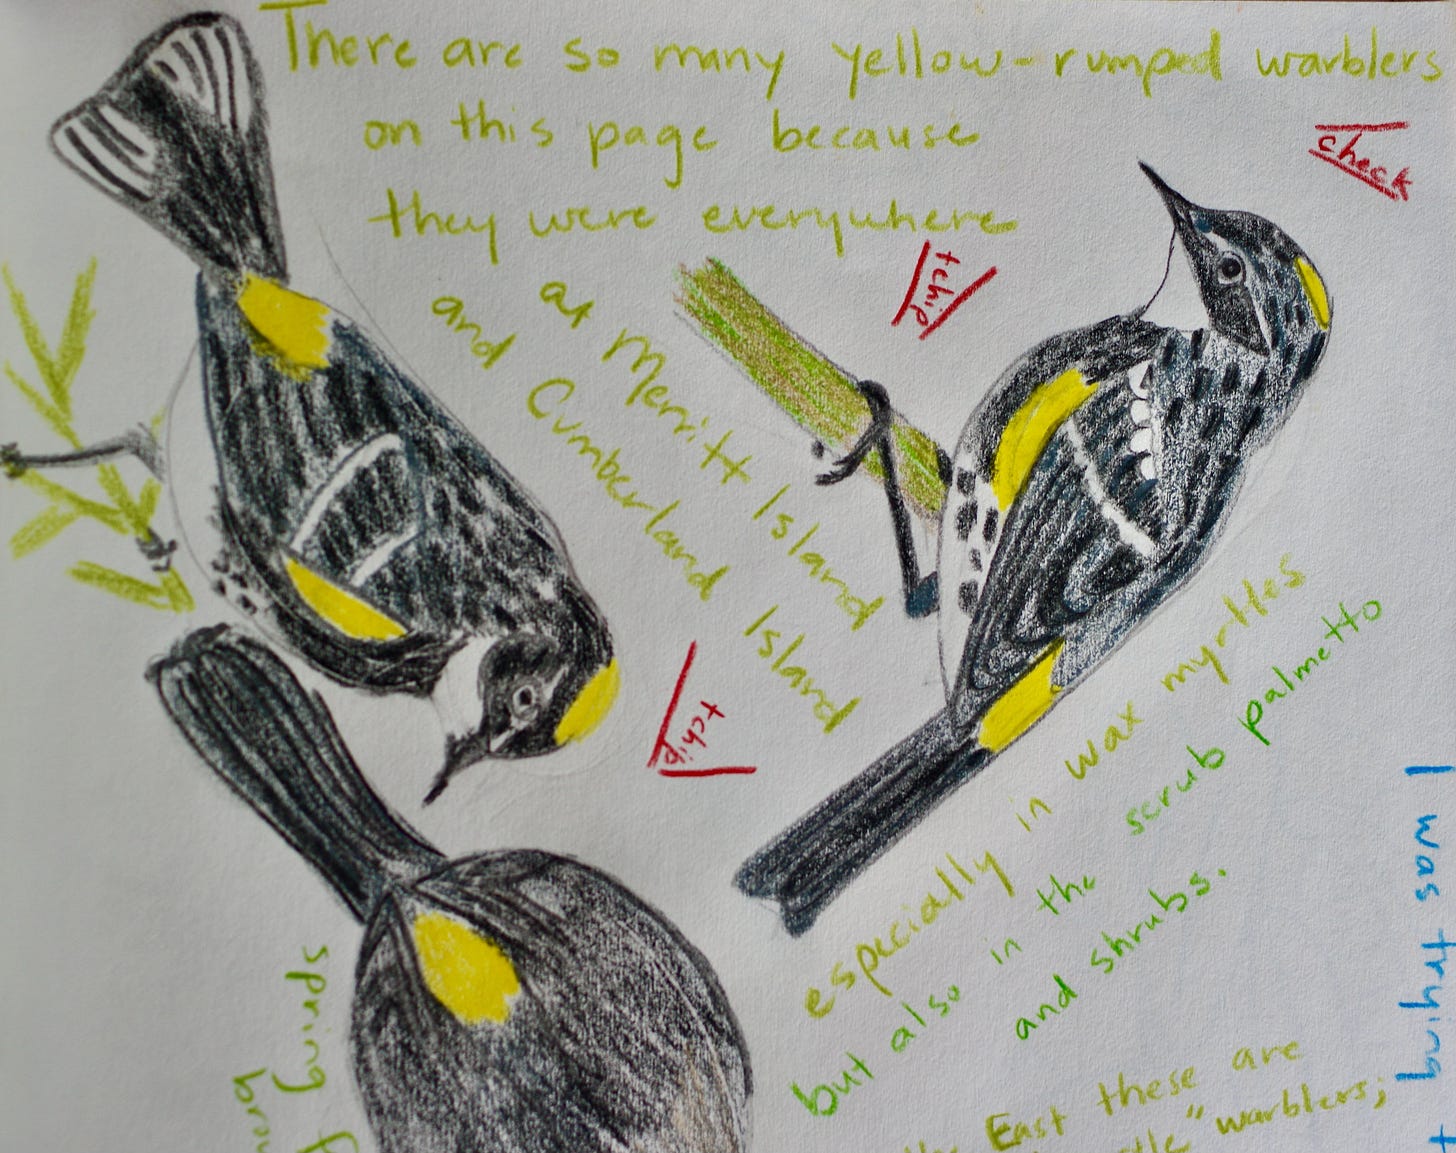 There are so many yellow-rumped warblers
on this page because
they were everywhere
at Merritt Island
and Cumberland Island
check
tchip
tchip
especially in wax myrtles
but also in the scrub palmetto
and shrubs.
East these are
" warblers;
I was trying
spring